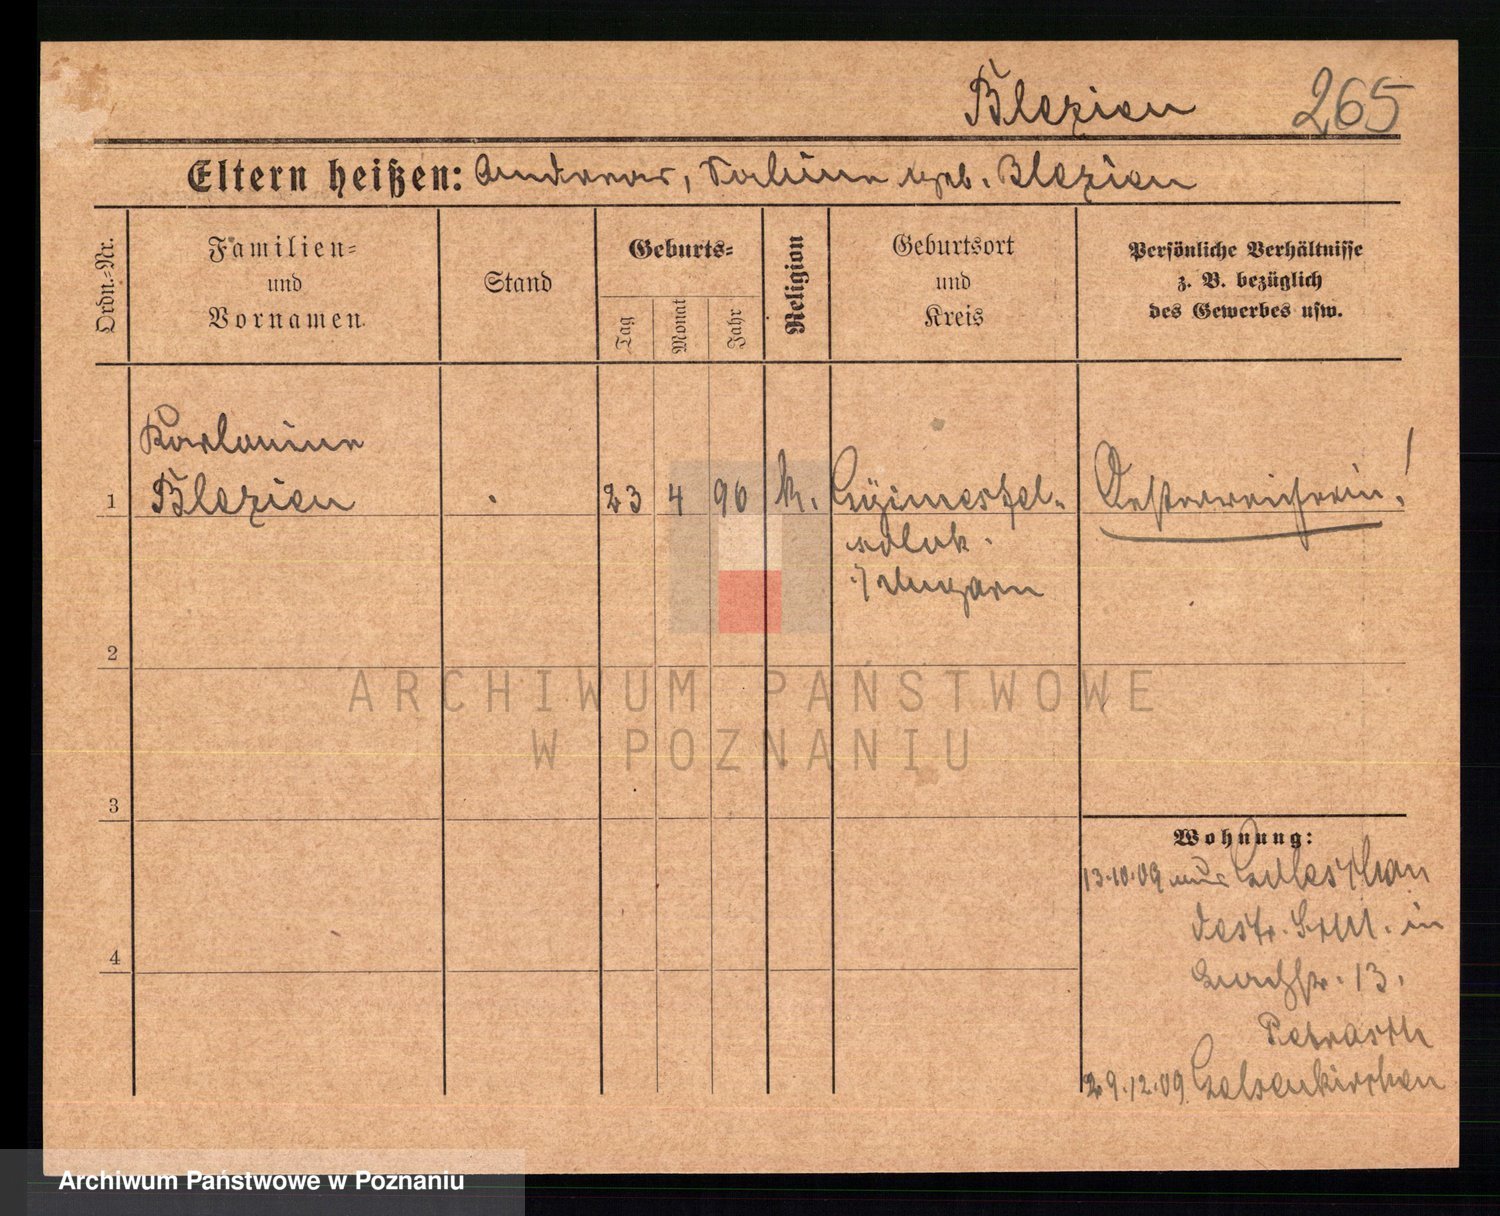 Blezien 265
Eltern heißen: Andreas, Sabine geb. Blezien
Ordn.-Nr.
Familien-
und
Vornamen.
Stand
Geburts-
Tag
Monat
Jahr
Religion
Geburtsort
und
Kreis
Persönliche Verhältnisse
z. B. bezüglich
des Gewerbes usw.
Karlonine
1 Blezien 23 4 90 k. Gyimesfel- Oesterreicherin!
sólok.
i/ Ungarn
2
3
4
Wohnung:
13.10.09 aus
in
13.
29.12.09 Gelsenkirchen
ARCHIWUM PAŃSTWOWE
W POZNANIU
Archiwum Państwowe w Poznaniu